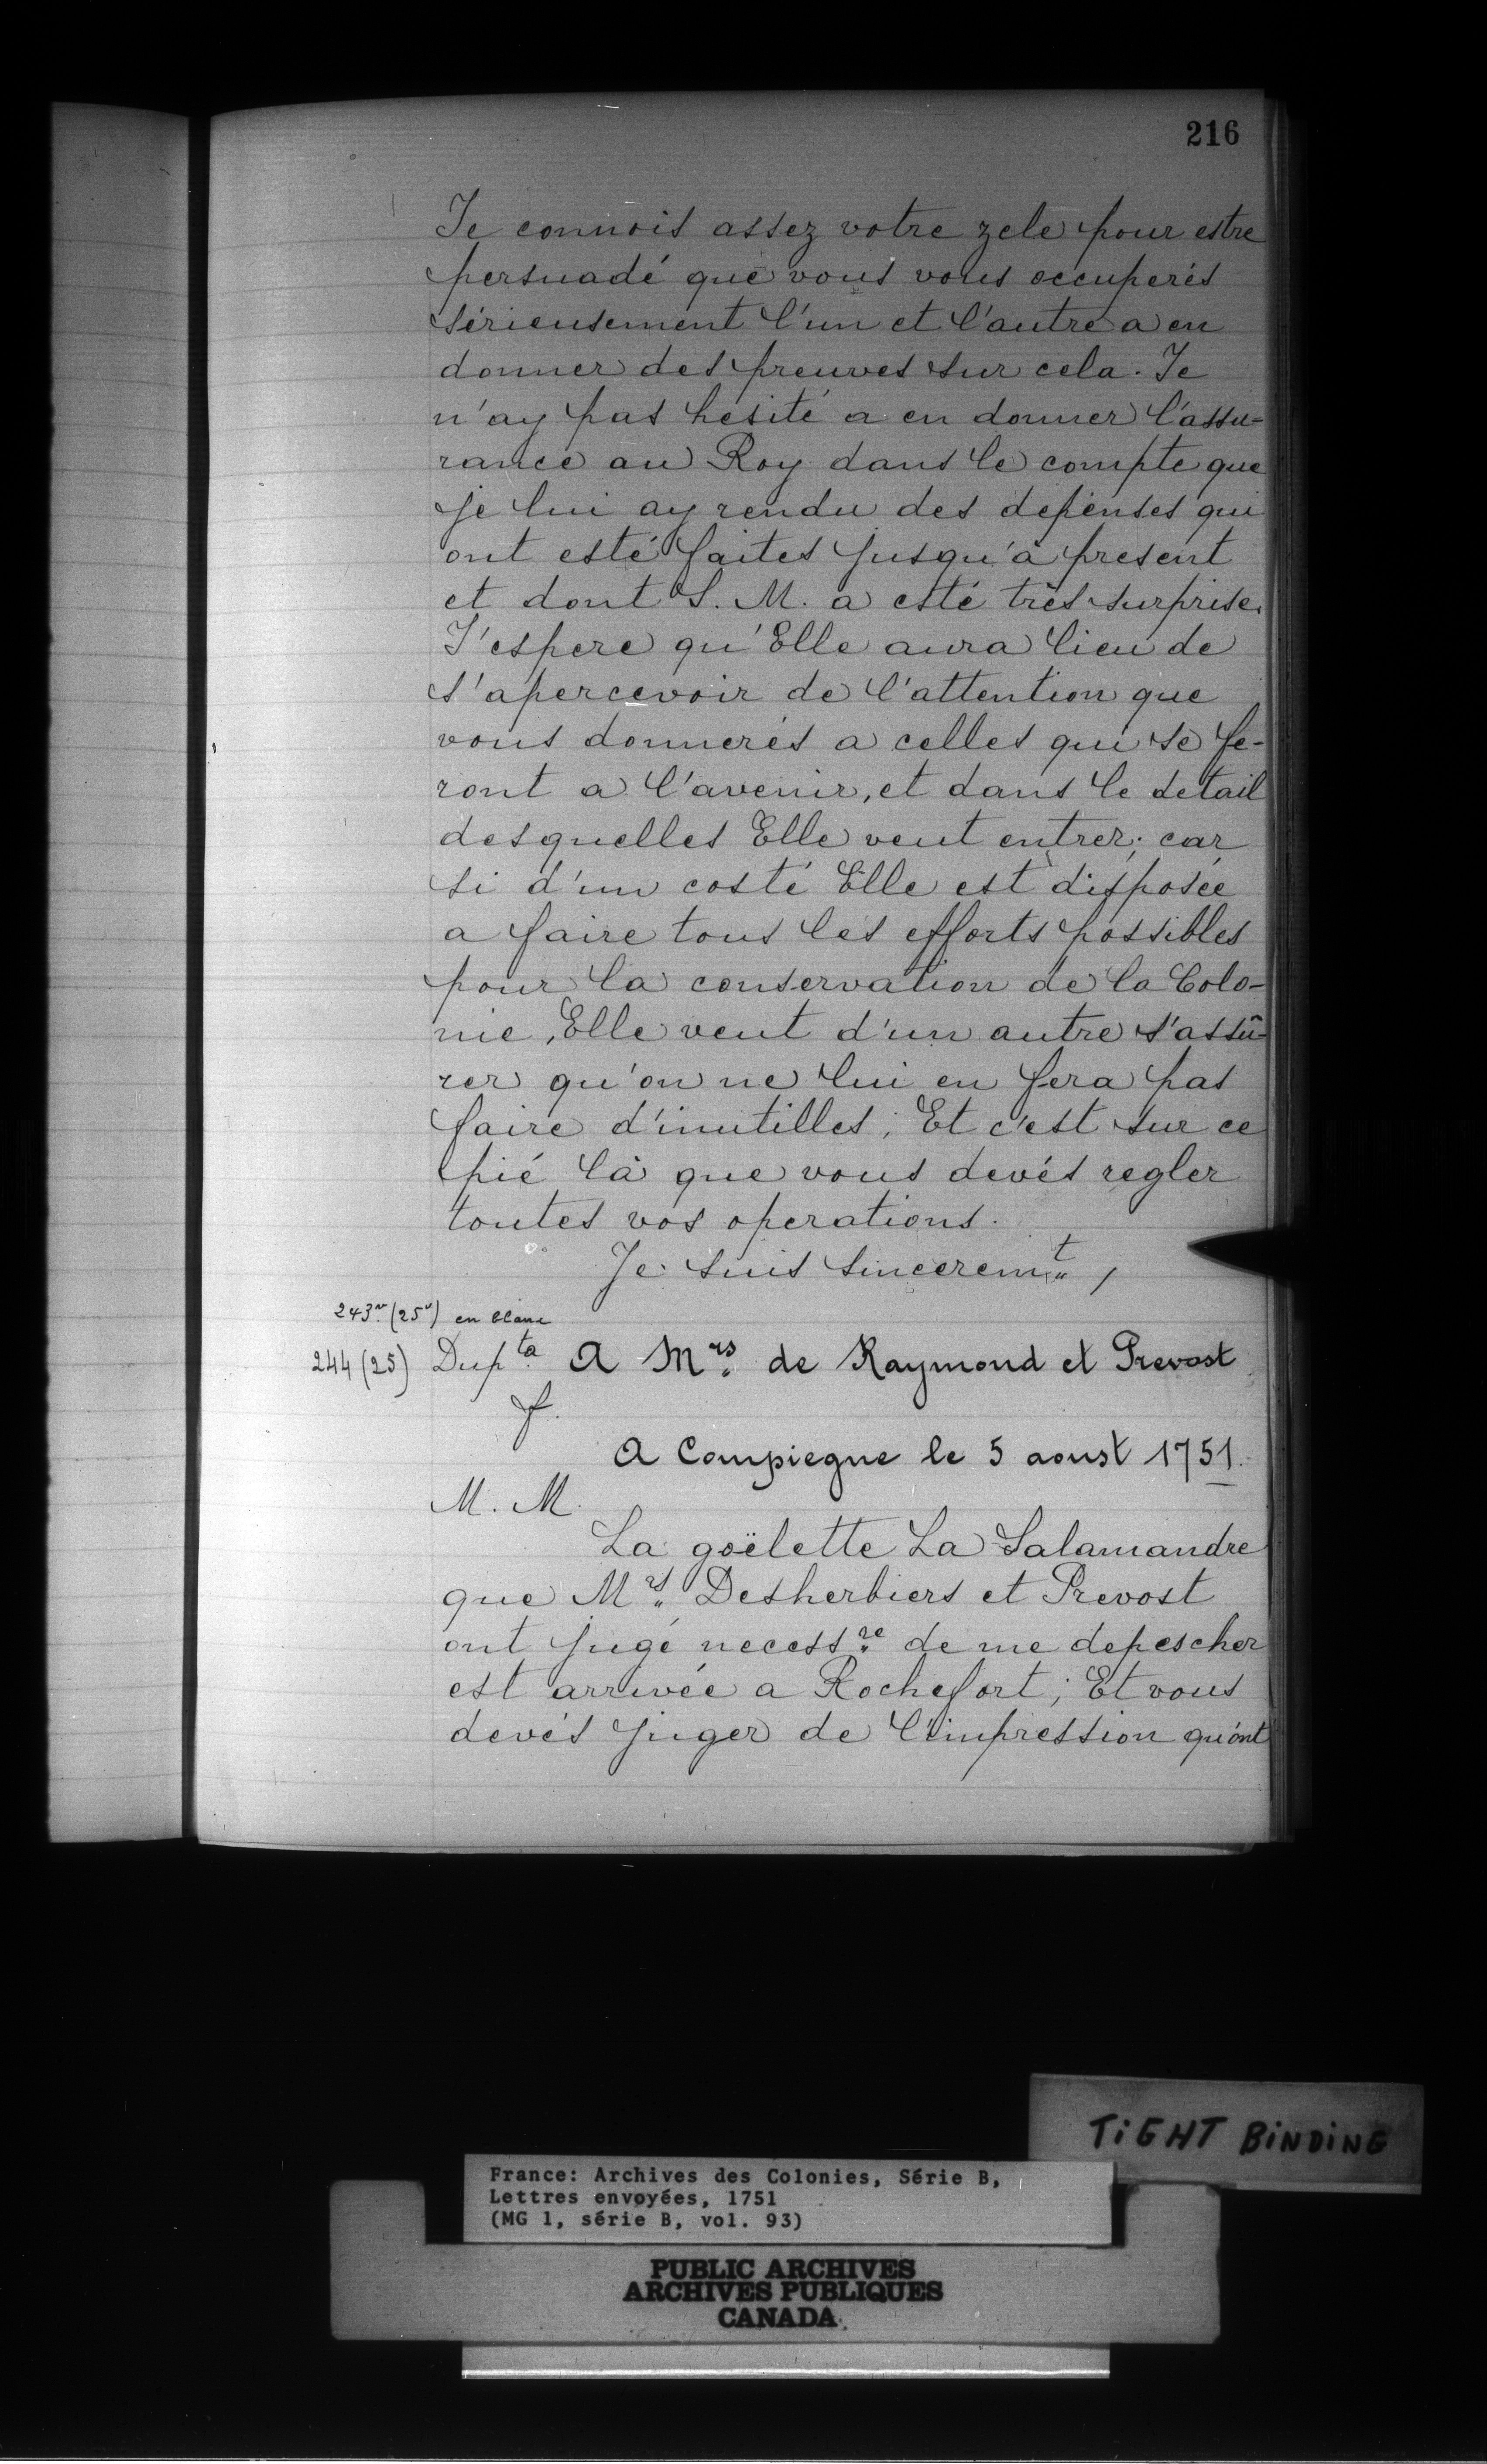 216
Je connois assez votre zele pour estre
persuadé que vous vous occuperés
sérieusement l'un et l'autre a en
donner des preuves sur cela. Je
n'ay pas hésité a en donner l'assu-
rance au Roy dans le compte que
je lui ay rendu des depenses qui
ont esté faites jusqu'à present
et dont S. M. a esté très surprise.
J'espere qu'Elle aura lieu de
s'apercevoir de l'attention que
vous donnerés a celles qui se fe-
ront a l'avenir, et dans le detail
desquelles Elle veut entrer; car
si d'un costé Elle est disposée
a faire tous les efforts possibles
pour la conservation de la Colo-
nie, Elle veut d'un autre s'assû-
rer qu'on ne lui en fera pas
faire d'inutilles; Et c'est sur ce
pié là que vous devés regler
toutes vos operations.
Je suis sincerem.t,
243.v (25v) en blanc
244 (25) Dup.ta A M.rs de Raymond et Prevost
f.
A Compiegne le 5 aoust 1751.
M. M.
La goëlette La Salamandre
que M.rs Desherbiers et Prevost
ont jugé necess.re de me depescher
est arrivée a Rochefort; Et vous
devés juger de l'impression qu'ont
TIGHT BINDING
France: Archives des Colonies, Série B,
Lettres envoyées, 1751
(MG 1, série B, vol. 93)
PUBLIC ARCHIVES
ARCHIVES PUBLIQUES
CANADA